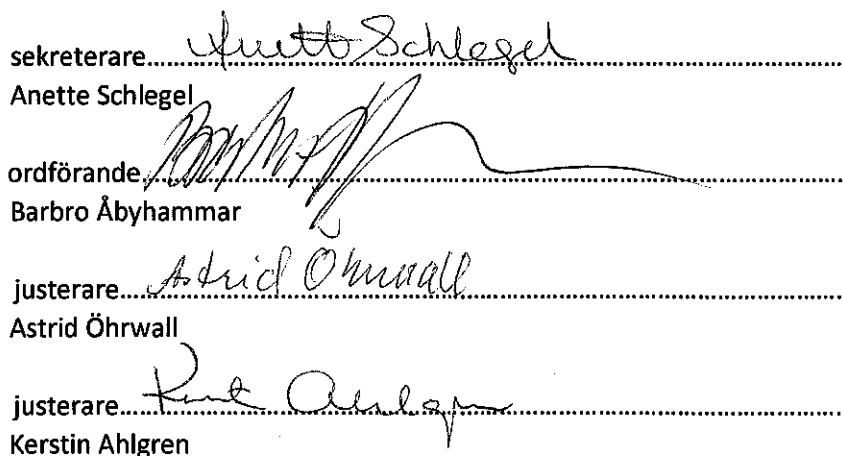 sekreterare.....Anett Schlegel.....
Anette Schlegel
ordförande.....
Barbro Åbyhammar
justerare.....Astrid Öhrwall.....
Astrid Öhrwall
justerare.....
Kerstin Ahlgren